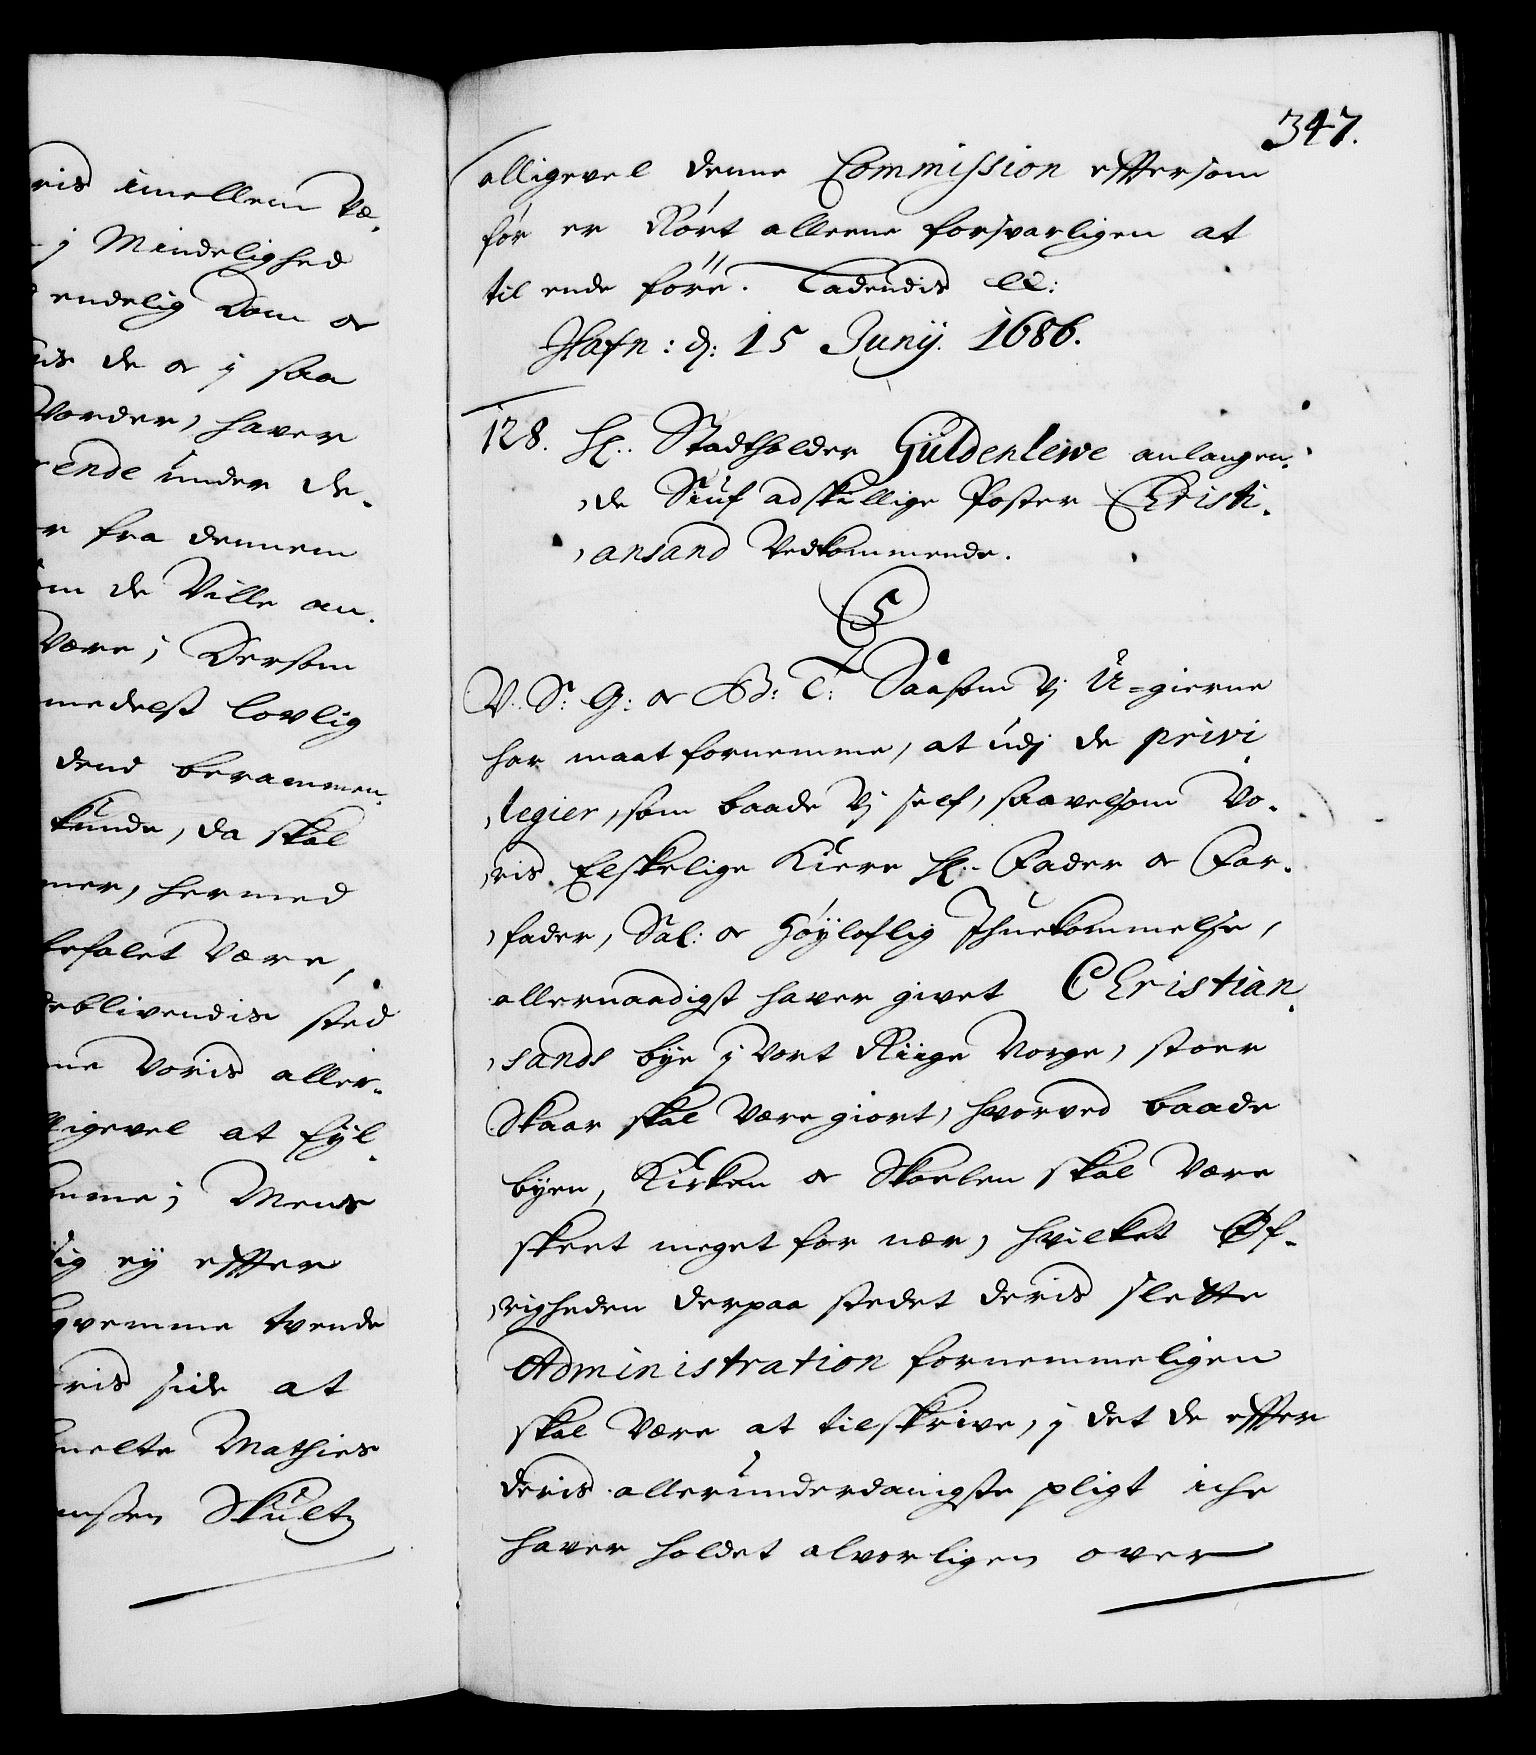 ris imellem Væ,
j Mindelighed
endelig Dom or
is de or j saa
Vorder, haver
rende under de,
r fra dennem
m de Ville an,
Være; Dersom
medelst lovlig
dend berammen,
kunde, da skal
ner, hermed
befalet Være,
debliven dis sted
ne Voris aller,
ligevel at fyl,
mme; Mens
sig ey effter
qvemme tvende
ris side at
melte Mathies
nssen Skultz
347.
alligevel denne Commission effersom
før er Rørt alleene forsvarligen at
til ende føre. Ladendis etc:
Hafn: d: 15 Junij. 1686.
128. H: Stadtholder Güldenlewe anlangen,
,de Siuf adskillige Poster Christi,
,ansand Vedkommende.
C5
V. S: G: or B: T: Saasom Vj U=gierne
har maat fornemme, at udj de privi,
,legier, som baade Vj self, saavelsom Vo,
,ris Elskelige Kiere H: Fader or Far,
,fader, Sal: or Høyloflig Ihuekommelse,
allernaadigst haver givet Christian,
,sands bye j Vort Riige Norge, stoer
Skaar skal Være giort, hvorved baade
byen, Kirken or Skoelen skal Være
skeet meget for nær, hvilket Øf,
,righeden derpaa stedet deris slette
Administration fornemmeligen
skal Være at tilskrive, j det de effter
deris allerunderdanigste pligt iche
haver holdet alvorligen over